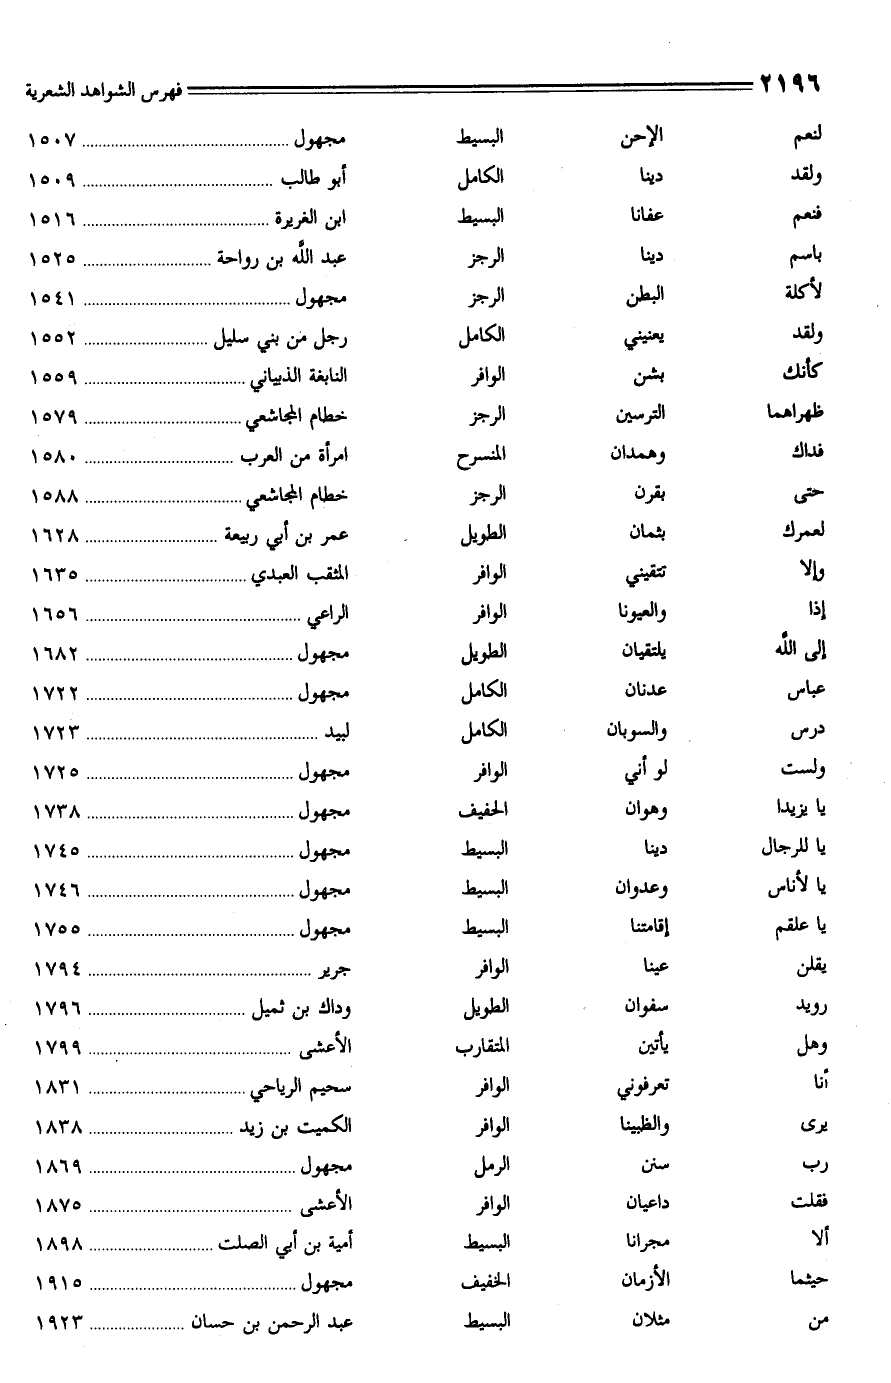 ٢١٩٦ فهرس الشواهد الشعرية
لنعم الإحن البسيط مجهول ١٥٠٧
ولقد دينا الكامل أبو طالب ١٥٠٩
فنعم عفانا البسيط ابن الغريرة ١٥١٦
باسم دينا الرجز عبد اللَّه بن رواحة ١٥٢٥
لأكلة البطن الرجز مجهول ١٥٤١
ولقد يعنيني الكامل رجل من بني سليل ١٥٥٢
كأنك بشن الوافر النابغة الذبياني ١٥٥٩
ظهراهما الترسين الرجز خطام المجاشعي ١٥٧٩
فداك وهمدان المنسرح امرأة من العرب ١٥٨٠
حتى بقرن الرجز خطام المجاشعي ١٥٨٨
لعمرك بثمان الطويل عمر بن أبي ربيعة ١٦٢٨
وإلا تتقيني الوافر المثقب العبدي ١٦٣٥
إذا والعيونا الوافر الراعي ١٦٥٦
إلى اللَّه يلتقيان الطويل مجهول ١٦٨٢
عباس عدنان الكامل مجهول ١٧٢٢
درس والسوبان الكامل لبيد ١٧٢٣
ولست لو أني الوافر مجهول ١٧٢٥
يا يزيدا وهوان الخفيف مجهول ١٧٣٨
يا للرجال دينا البسيط مجهول ١٧٤٥
يا لأناس وعدوان البسيط مجهول ١٧٤٦
يا علقم إقامتنا البسيط مجهول ١٧٥٥
يقلن عينا الوافر جرير ١٧٩٤
رويد سفوان الطويل وداك بن ثميل ١٧٩٦
وهل يأتين المتقارب الأعشى ١٧٩٩
أنا تعرفوني الوافر سحيم الرياحي ١٨٣١
يرى والظبينا الوافر الكميت بن زيد ١٨٣٨
رب سنن الرمل مجهول ١٨٦٩
فقلت داعيان الوافر الأعشى ١٨٧٥
ألا مجرانا البسيط أمية بن أبي الصلت ١٨٩٨
حيثما الأزمان الخفيف مجهول ١٩١٥
من مثلان البسيط عبد الرحمن بن حسان ١٩٢٣